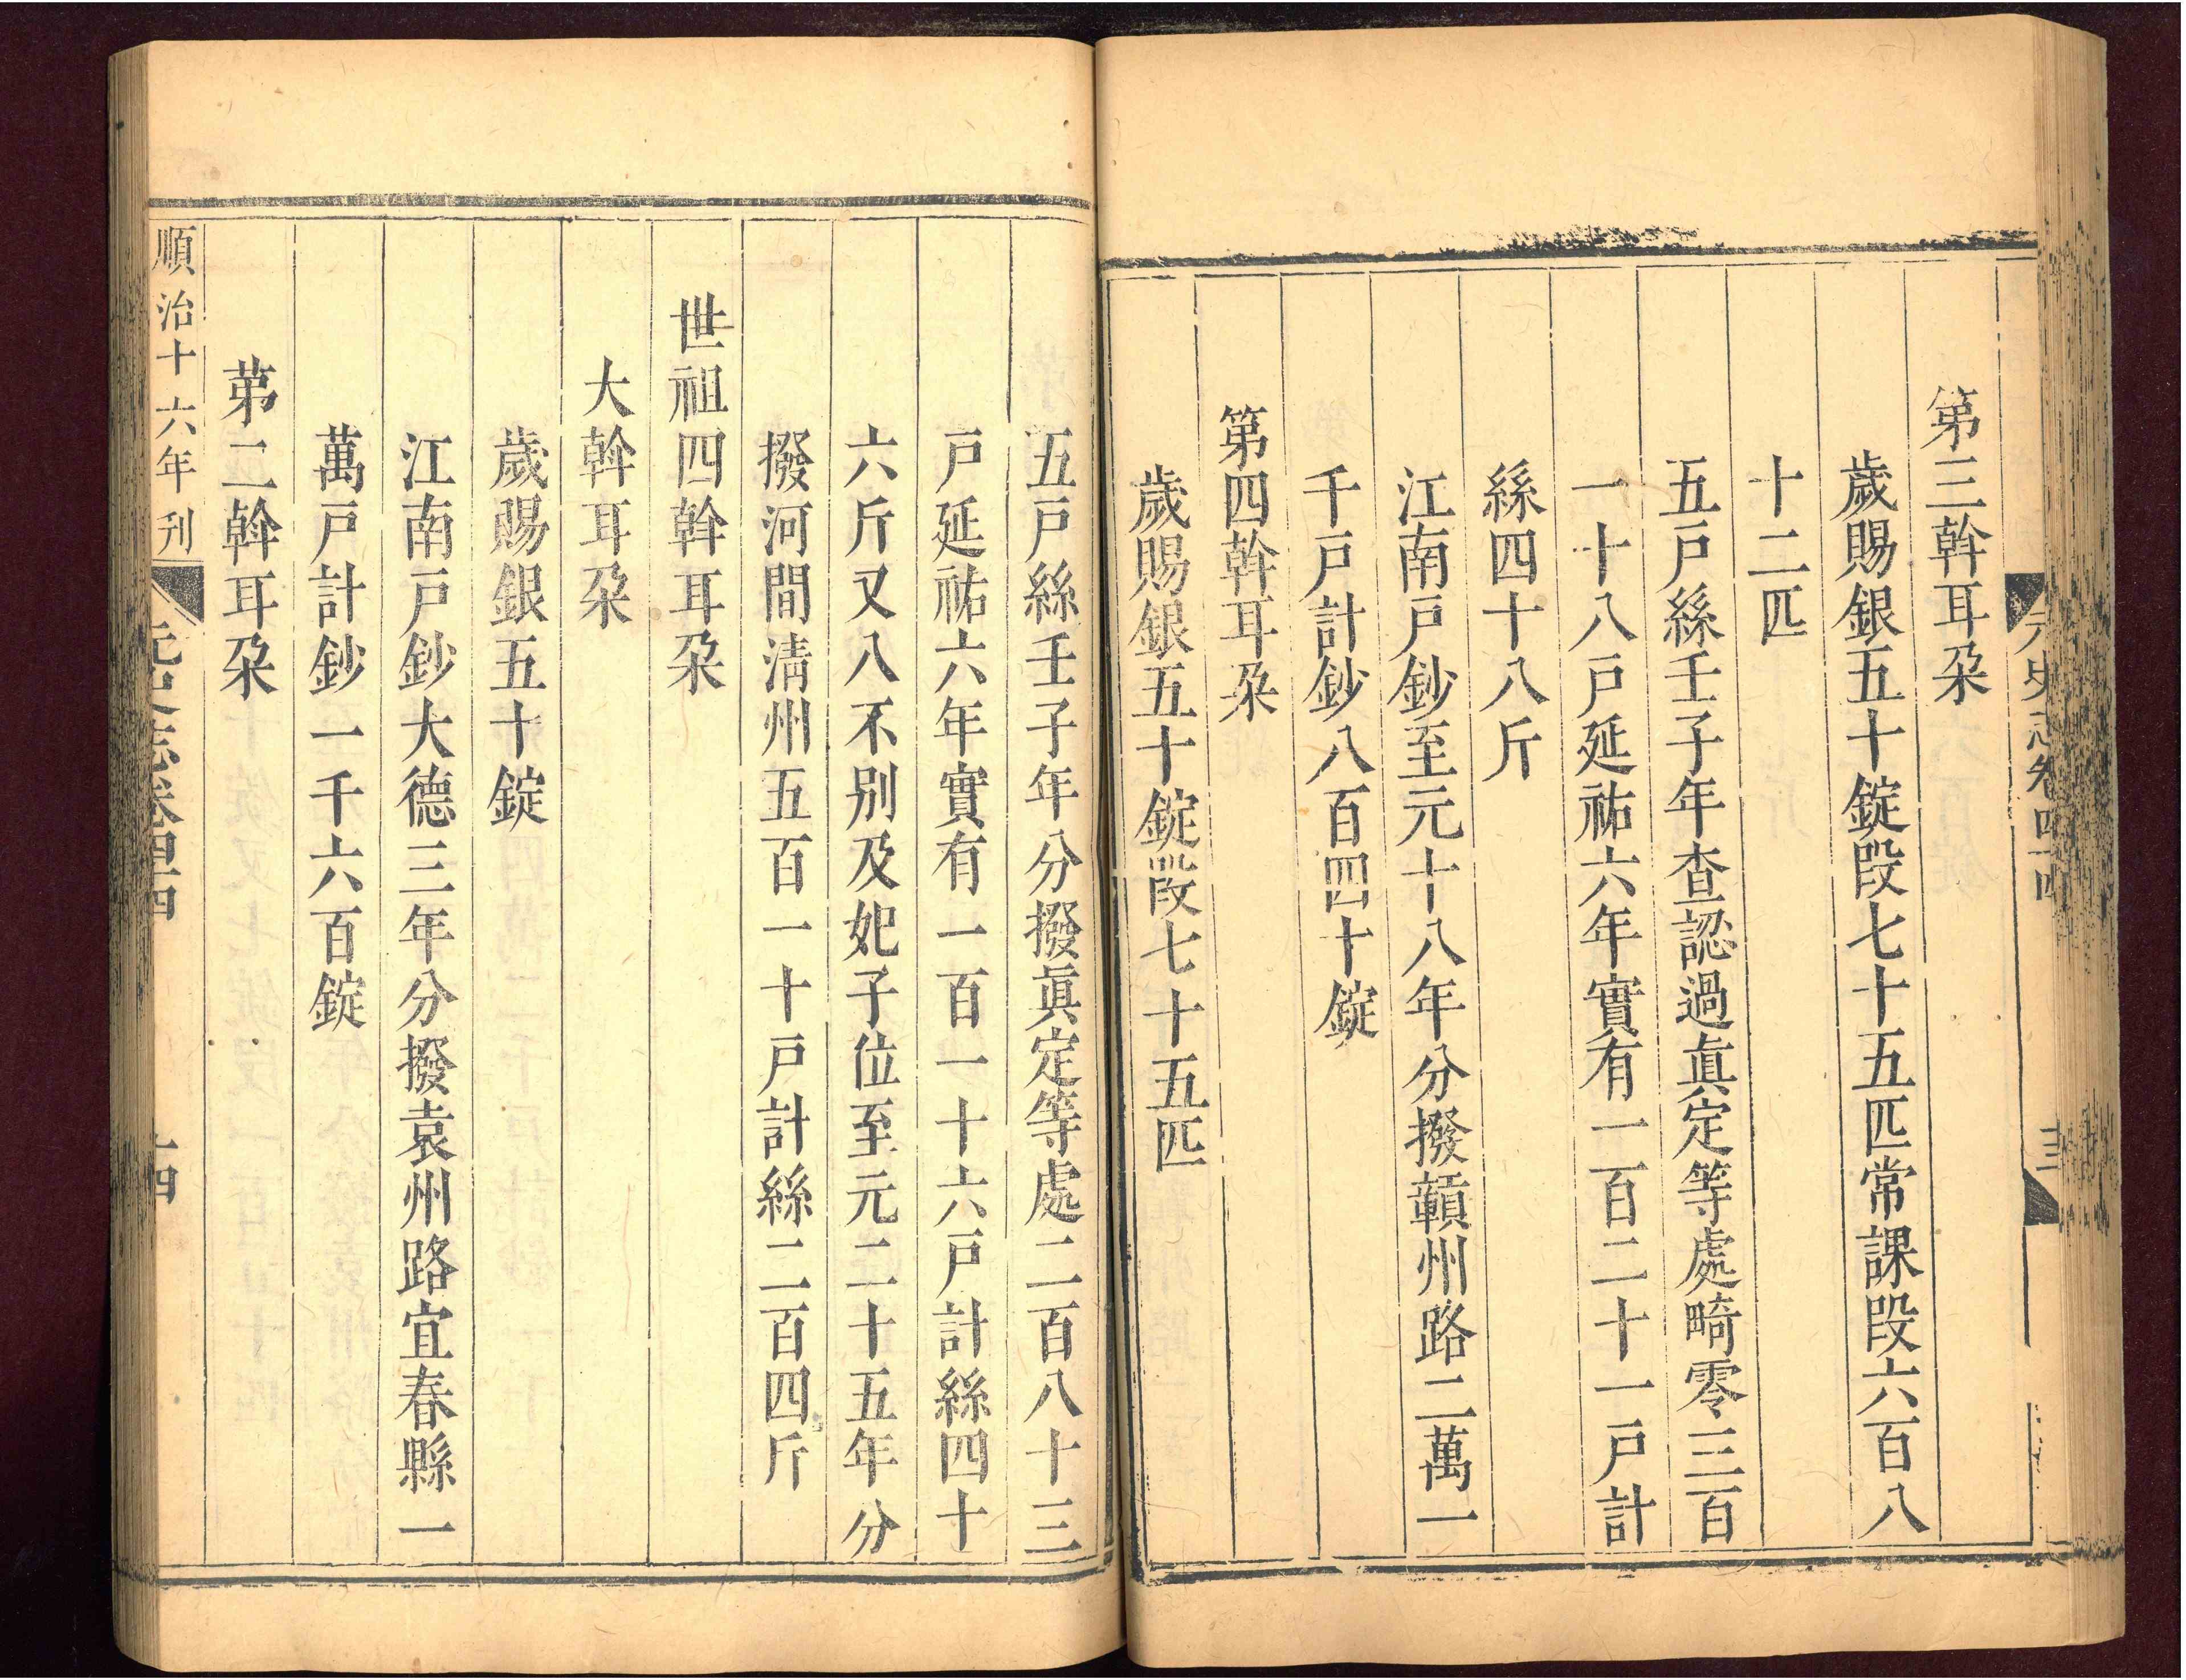 元史志卷四十四
十三
第三斡耳朶
歲賜銀五十錠段七十五匹常課段六百八
十二匹
五戸絲壬子年查認過眞定等處畸零三百
一十八戸延祐六年實有一百二十一戸計
絲四十八斤
江南戸鈔至元十八年分撥贛州路二萬一
千戸計鈔八百四十錠
第四斡耳朶
歲賜銀五十錠段七十五匹
五戸絲壬子年分撥眞定等處二百八十三
戸延祐六年實有一百一十六戸計絲四十
六斤又八不別及妃子位至元二十五年分
撥河間淸州五百一十戸計絲二百四斤
世祖四斡耳朶
大斡耳朶
歲賜銀五十錠
江南戸鈔大德三年分撥袁州路宜春縣一
萬戸計鈔一千六百錠
第二斡耳朶
順治十六年刊 元史志卷四十四 十四